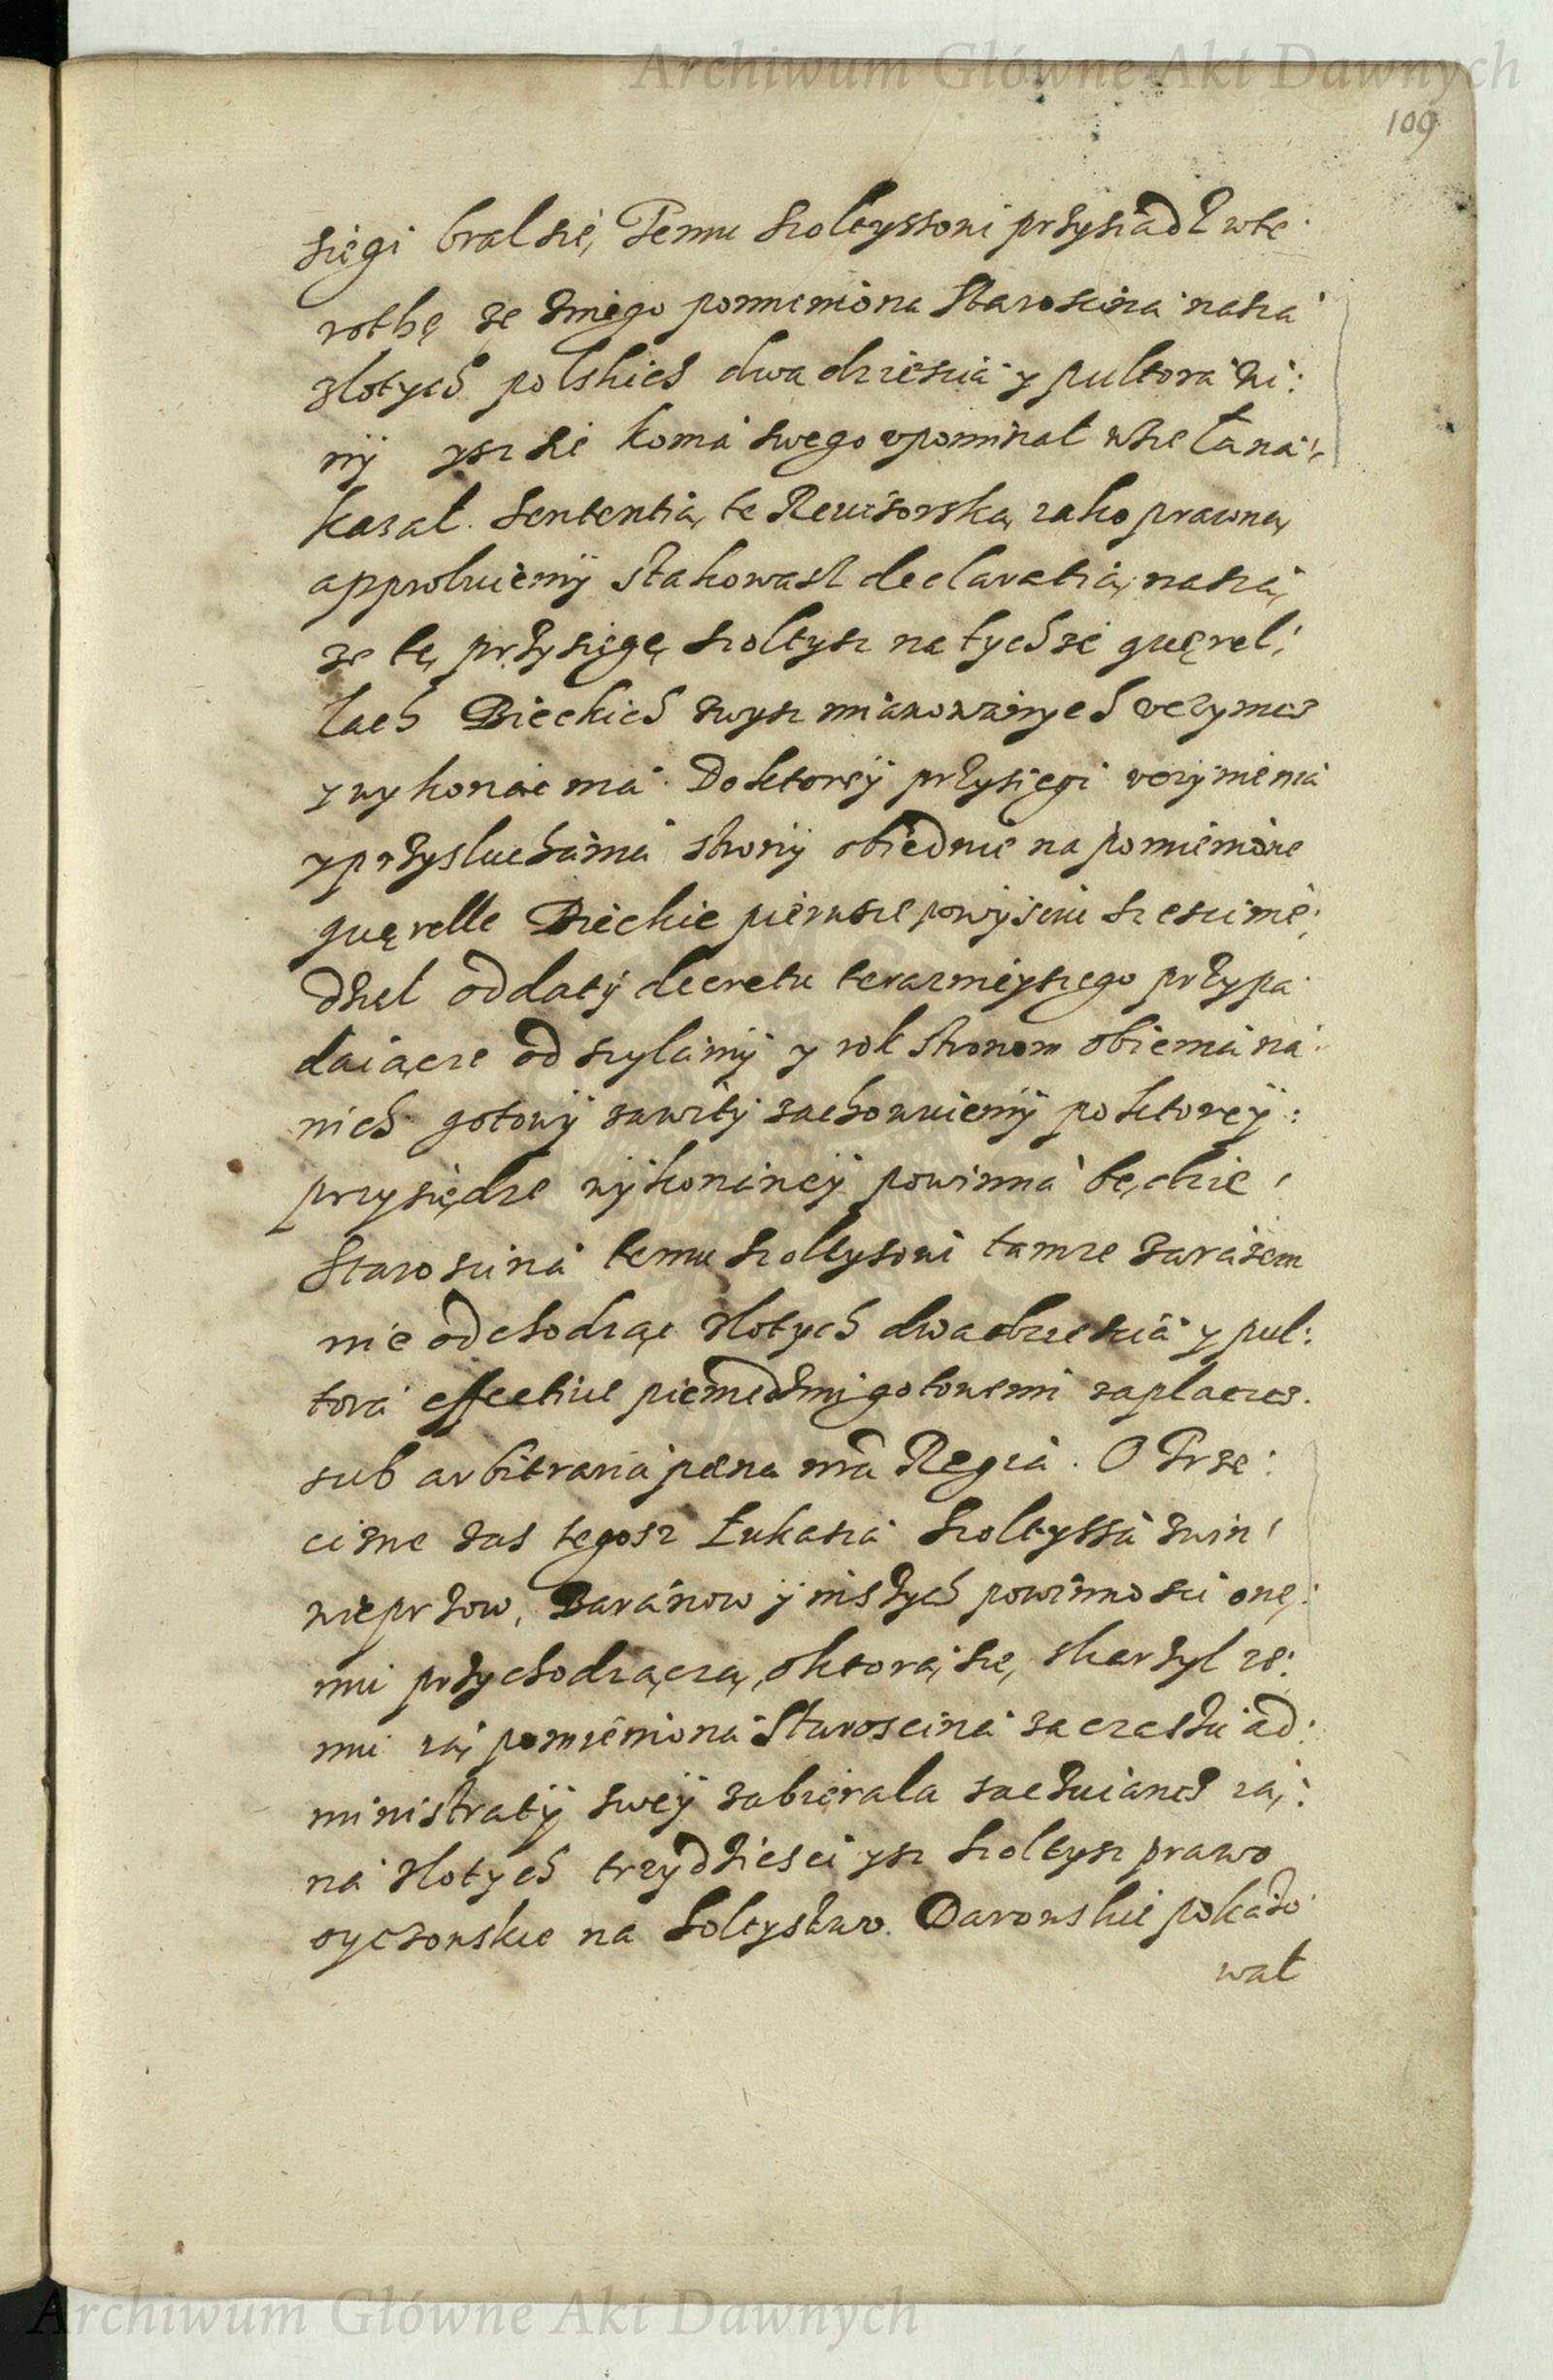 Archiwum Główne Akt Dawnych
109
sięgi bral się, Temu szoltyssowi przysiądz wtę
rothę ze zniego pomieniona Starościna nasza
zlotych polskich dwadzieścia y pultora wi:
ny ysz się koma swego vpominał wzięła na:
kazał. Sententią tę Revisorską iako prawną
approbuiemy stakowasz declaratią naszą,
ze tę przysięgę szoltysz na tychże quęrel:
lach Bieckich zwysz mianowanych vczynic
y wykonać ma. Do ktorey przysięgi vczynienia
y przysluchania strony obiedwie na pomienione
quęrelle Bieckie pierwsze powyściu sześci nie:
dziel od daty decretu teraznieyszego przypa
daiącze odsylamy y rok stronom obiema na
nich gotowy zawity zachowuiemy po ktorey:
przysiędze wykonaney powinna będzie
Starościna temu szoltysowi tamze zarazem
nie odchodząc zlotych dwadzieścia y pul:
tora effective pieniędzmi gotowemi zaplacic.
sub arbitraria pæna nra Regia. O Trze:
cizne zas tegosz Łukasza szoltyssa zwin
wieprzow, Baranow y inszych powinności one:
mu przychodzączą, o ktorą się, skarzyl ze:
mu ią pomieniona Starościna za czasu ad:
ministraty swey zabierala szacuianc ią:
na zlotych trzydzieści ysz szoltysz prawo
oyczowskie na soltystwo Darowskie pokazo
wał
Archiwum Główne Akt Dawnych